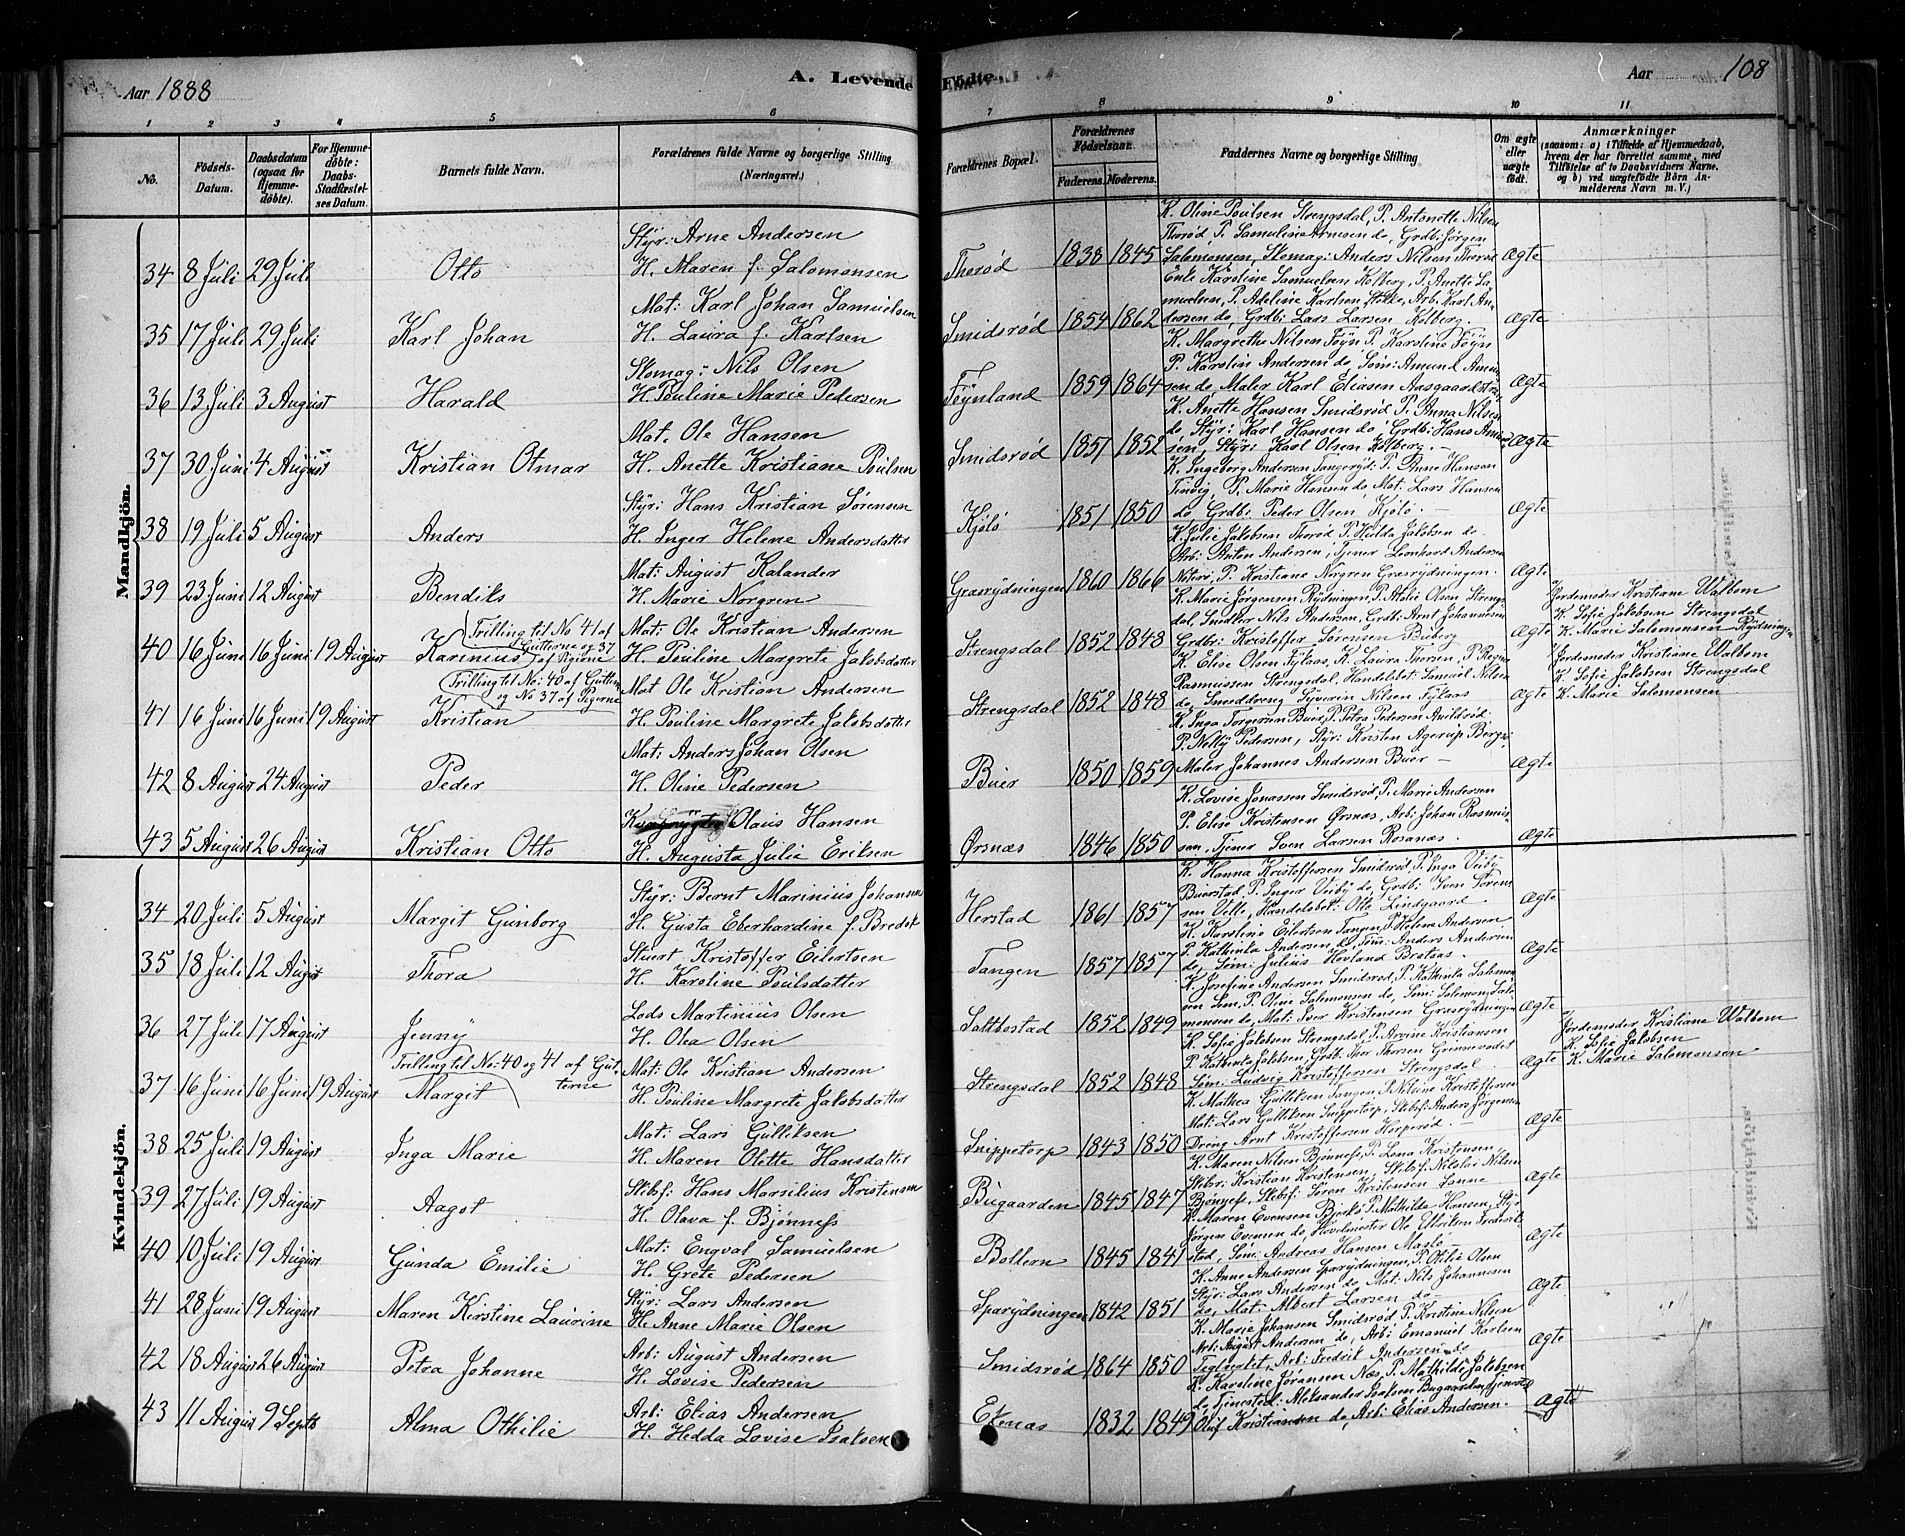 Aar 1888
A. Levende Födte.
Aar
108
1 2 3 4 5 6 7 8 9 10 11
No.
Födsels-Datum.
Daabsdatum (ogsaa for Hjemmedöbte).
For Hjemmedöbte: Daabs-Stadfæstelses Datum.
Barnets fulde Navn.
Forældrenes fulde Navne og borgerlige Stilling (Næringsvei.)
Forældrenes Bopæl.
Forældrenes Födselsaar.
Faderens. Moderens.
Faddernes Navne og borgerlige Stilling
Om ægte eller uægte födt.
Anmærkninger
(saasom: a) i Tilfælde af Hjemmedaab, hvem der har forrettet samme, med Tilföielse af to Daabsvidners Navne, og b) ved uægtefödte Börn Anmelderens Navn m. V.)
Mandkjön.
34 8 Juli 29 Juli Otto
Styr: Arne Andersen
H. Maren f. Salomonsen
Thorød 1838 1845
K. Oline Poulsen Strengsdal, P. Antonette Nilsen
Thorød, P. Samuline Arnesen do, Grdb: Jørgen
Salomonsen, Skomag: Anders Nilsen Thorød
Ægte
35 17 Juli 29 Juli Karl Johan
Mat: Karl Johan Samuelsen
H. Laura f. Karlsen
Smidsrød 1854 1862
Enke Karoline Samuelsen Kolberg, P. Anette Samuelsen, P. Adeline Karlsen Stokke, Arb. Karl Andersen do, Grdb: Lars Larsen Kolberg
Ægte
36 13 Juli 3 August Harald
Skomag: Nils Olsen
H. Pouline Marie Pedersen
Føynland 1859 1864
K. Margrethe Nilsen Føyn P. Karoline Føyn
P. Karoline Andersen do, Søm: Amund Amundsen do, Maler Karl Eliasen Aasgaardstran
Ægte
37 30 Juni 4 August Kristian Otmar
Mat. Ole Hansen
H. Anette Kristiane Poulsen
Smidsrød 1851 1852
K. Anette Hansen Smidsrød P. Anna Nilsen
do Styr: Karl Hansen do, Grdb: Hans
Styr: Karl Olsen Kolberg.
Ægte
38 19 Juli 5 August Anders
Styr: Hans Kristian Sørensen
H. Inger Helene Andersdatter
Kjøle 1851 1850
K. Ingeborg Andersen P. Anne Hansen
P. Marie Hansen do, Mat: Lars Hansen
do Grdb: Peder Olsen Kjølø.
Ægte
39 23 Juni 12 August Bendiks
Mat: August Kalander
H. Marie Norgren
Grasrydningen 1860 1866
K. Julie Jakobsen Thorød P. Hulda Jakobsen do
Arb: Anton Andersen, Tjener Leonhard Andersen
Nøterø, P. Kristiane Norgren Grasrydningen.
Ægte
40 16 Juni 16 Juni 19 August Karinius
Trilling til No 41 af Gutterne og 37 af Pigerne
Mat: Ole Kristian Andersen
H. Pouline Margrete Jakobsdatter
Strengsdal 1852 1848
K. Marie Jørgensen Rydningen, P. Olsen Strengsdal, Snedker Nils Andersen, Grdb: Arnt Johannesen
Grdbr: Kristoffer Sørensen Buberg
Ægte
Jordemoder Kristiane Walbom
K. Sofie Jakobsen Strengsdal
K. Marie Salomonsen Rydningen
41 16 Juni 16 Juni 19 August Kristian
Trilling til No: 40 af Gutterne og No 37 af Pigerne
Mat Ole Kristian Andersen
H. Pouline Margrete Jakobsdatter
Strengsdal 1852 1848
K. Elise Olsen Fylaas, K. Laura Thorsen, P.
Rasmussen Strengsdal, Handelsbet: Samuel Nilsen
do, Smeddreng Syverin Nilsen Fylaas
Ægte
Jordemoder Kristiane Walbom
K. Sofie Jakobsen Strengsdal
K. Marie Salomonsen
42 8 August 24 August Peder
Mat: Anders Johan Olsen
H. Oline Pedersen
Buer 1850 1859
K. Inga Torgersen Buer, P. Petra Pedersen
P. Nelly Pedersen, Styr: Kristen Agerup
Maler Johannes Andersen Buer
Ægte
43 5 August 26 August Kristian Otto
Olaus Hansen
H. Augusta Julie Eriksen
Ørsnæs 1846 1850
K. Lovise Jonassen Smidsrød, P. Marie Andersen
P. Elise Kristensen Ørsnæs, Arb: Johan Rasmussen, Tjener Sven Larsen Rosanæs.
Ægte
Kvindekjön.
34 20 Juli 5 August Margit Gunborg
Styr: Bernt Marinius Johansen
H. Gusta Eberhardine f. Bredek
Herstad 1861 1857
K. Hanna Kristoffersen Smidsrød, P. Inga Veiby
Buerstad P. Inger Veiby do, Grdb: Iven Sørensen Velle, Handelsbet: Otto Lindgaard
Ægte
35 18 Juli 12 August Thora
Stuert Kristoffer Eilertsen
H. Karoline Poulsdatter
Tangen 1857 1857
K. Karoline Eilertsen Tangen, P. Helene Andersen
P. Kathinka Andersen do, Søm: Anders Andersen
do, Søm: Julius Havland
Ægte
36 27 Juli 17 August Jenny
Lods Martinius Olsen
H. Olea Olsen
Saltbostad 1852 1849
K. Josefine Andersen Smidsrød, P. Kathinka Salomonsen P. Oline Salomonsen do, Søm: Salomon Salomonsen do, Mat: Iver Kristensen Grasrydningen
Ægte
37 16 Juni 16 Juni 19 August Margit
Trilling til No: 40 og 41 af Gutterne
Mat: Ole Kristian Andersen
H. Pouline Margrete Jakobsdatter
Strengsdal 1852 1848
K. Sofie Jakobsen Strengsdal, P. Kristiansen
P. Kathinka Jakobsen, Grdb: Thor Thorsen
Søm: Ludvig Kristoffersen Strengsdal
Ægte
Jordemoder Kristiane Walbom
K. Sofie Jakobsen
K. Marie Salomonsen
38 25 Juli 19 August Inga Marie
Mat: Lars Gulliksen
H. Maren Olette Hansdatter
Snippetorp 1843 1850
K. Mathea Gulliksen Tangen, P. Kristoffersen
Mat: Lars Gulliksen Snippetorp, Skibsf: Anders Jørgensen
Dreng Arnt Kristoffersen Herperød.
Ægte
39 27 Juli 19 August Aagot
Skibsf: Hans Marsilius Kristensen
H. Olava f. Bjønness
Bugaarden 1845 1847
K. Maren Nilsen Bjønness, P. Lena Kristensen,
Skibsr: Kristian Kristensen, Skibsf: Nikolai Nilsen
Bjønness, Skibsf: Søren Kristensen
Ægte
40 10 Juli 19 August Gunda Emilie
Mat: Engval Samuelsen
H. Grete Pedersen
Boltern 1845 1841
K. Maren Evensen Bjerkø P. Mathilde Hansen, Styr:
Jørgen Evensen do, Hovelmester Ole Fredrikstad, Søm: Andreas Hansen
Ægte
41 28 Juni 19 August Maren Kirstine Laurine
Styr: Lars Andersen
H. Anne Marie Olsen
Sparydningen 1842 1851
K. Anne Andersen Sparydningen, P. Othie Olsen
Styr: Lars Andersen do, Mat: Nils Johannesen
do, Mat: Albert Larsen do
Ægte
42 18 August 26 August Petra Johanne
Arb: August Andersen
H. Lovise Pedersen
Smidsrød 1864 1850
K. Marie Johansen Smidsrød, P. Kristine Nilsen
Arb: August Andersen do, Arb: Emanuel Karlsen
Teglverket, Arb: Fredrik Andersen do
Ægte
43 11 August 9 Septb Alma Othilie
Arb: Elias Andersen
H. Hedda Lovise Isaksen
Ekenæs 1832 1849
K. Karoline Jøransen Næs, P. Mathilde Jakobsen
do, Aleksander Isaksen Bugaarden,
Oluf Kristiansen do, Arb: Elias Andersen.
Ægte